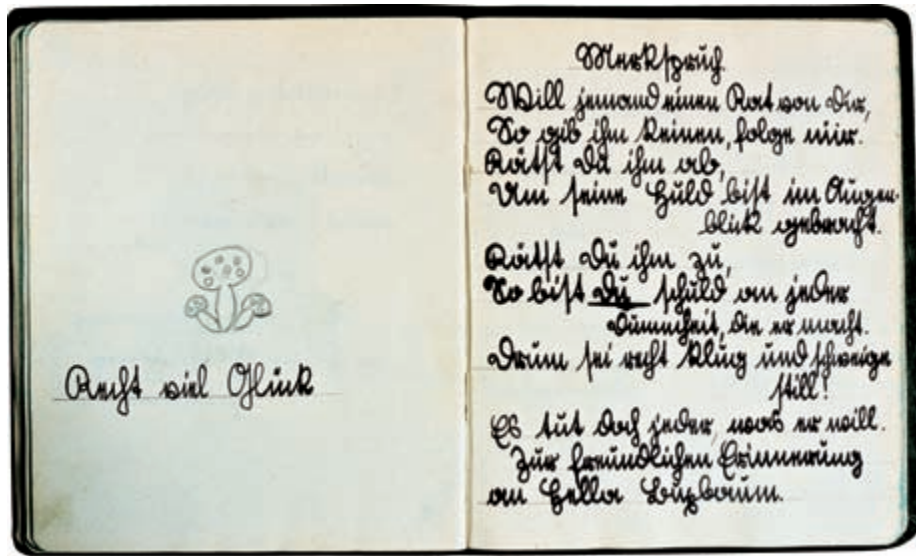 Recht viel Glück
Merkspruch.
Will jemand einen Rat von Dir,
So gib ihm keinen, folge mir.
Rätst Du ihm ab,
Um seine Huld bist im Augen-
blick gebracht.
Rätst Du ihm zu,
So bist Du schuld an jeder
Dummheit, die er macht.
Drum sei recht klug und schweige
still!
Es tut doch jeder, was er will.
Zur freundlichen Erinnerung
an Hella Buxbaum.